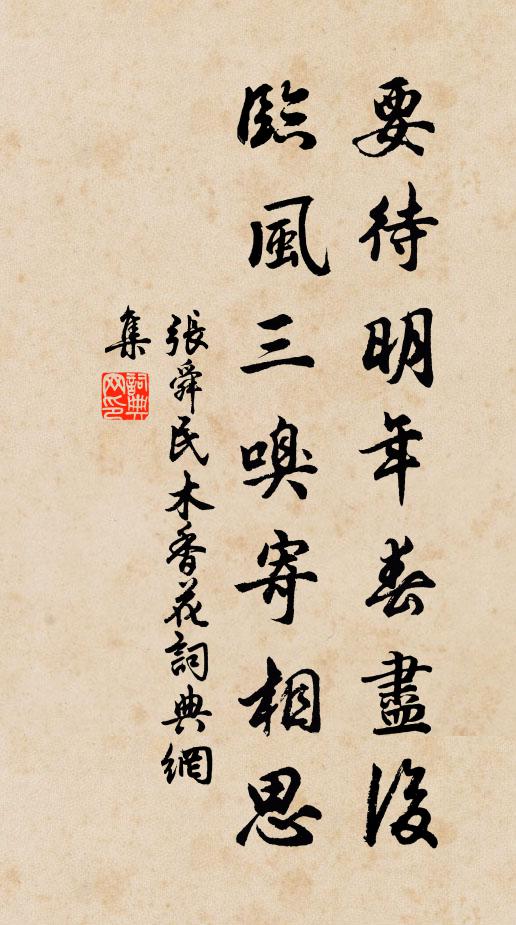 要待明年春盡後
臨風三嗅寄相思
張舜民木香花詞典網
集
詞典
网印